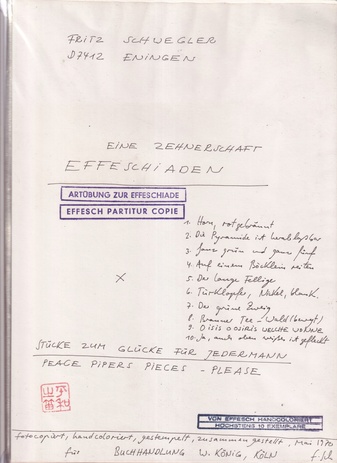 FRITZ SCHWEGLER
D7412 ENINGEN
EINE ZEHNERSCHAFT
EFFESCHIADEN
ARTÜBUNG ZUR EFFESCHIADE
EFFESCH PARTITUR COPIE
1. Horn, rotgebrannt
2. Die Pyramide ist
3. ganz grün und ganz
4. Auf einem Böcklein reiten
5. Der lange
6. Türklopfer, Nickel, blank.
7. Der grüne Zweig
8. Brauner Tee - Wald (bewegt)
9. OISIS OSIRIS WELCHE WONNE
10. Ja, auch oben weißes ist gefleckt
STÜCKE ZUM GLÜCKE FÜR JEDERMANN
PEACE PIPERS PIECES - PLEASE
VON EFFESCH HANDCOLORIERT
HÖCHSTENS 10 EXEMPLARE
fotocopiert, handcoloriert, gestempelt, zusammengestellt, Mai 1970
für BUCHHANDLUNG W. KÖNIG, KÖLN